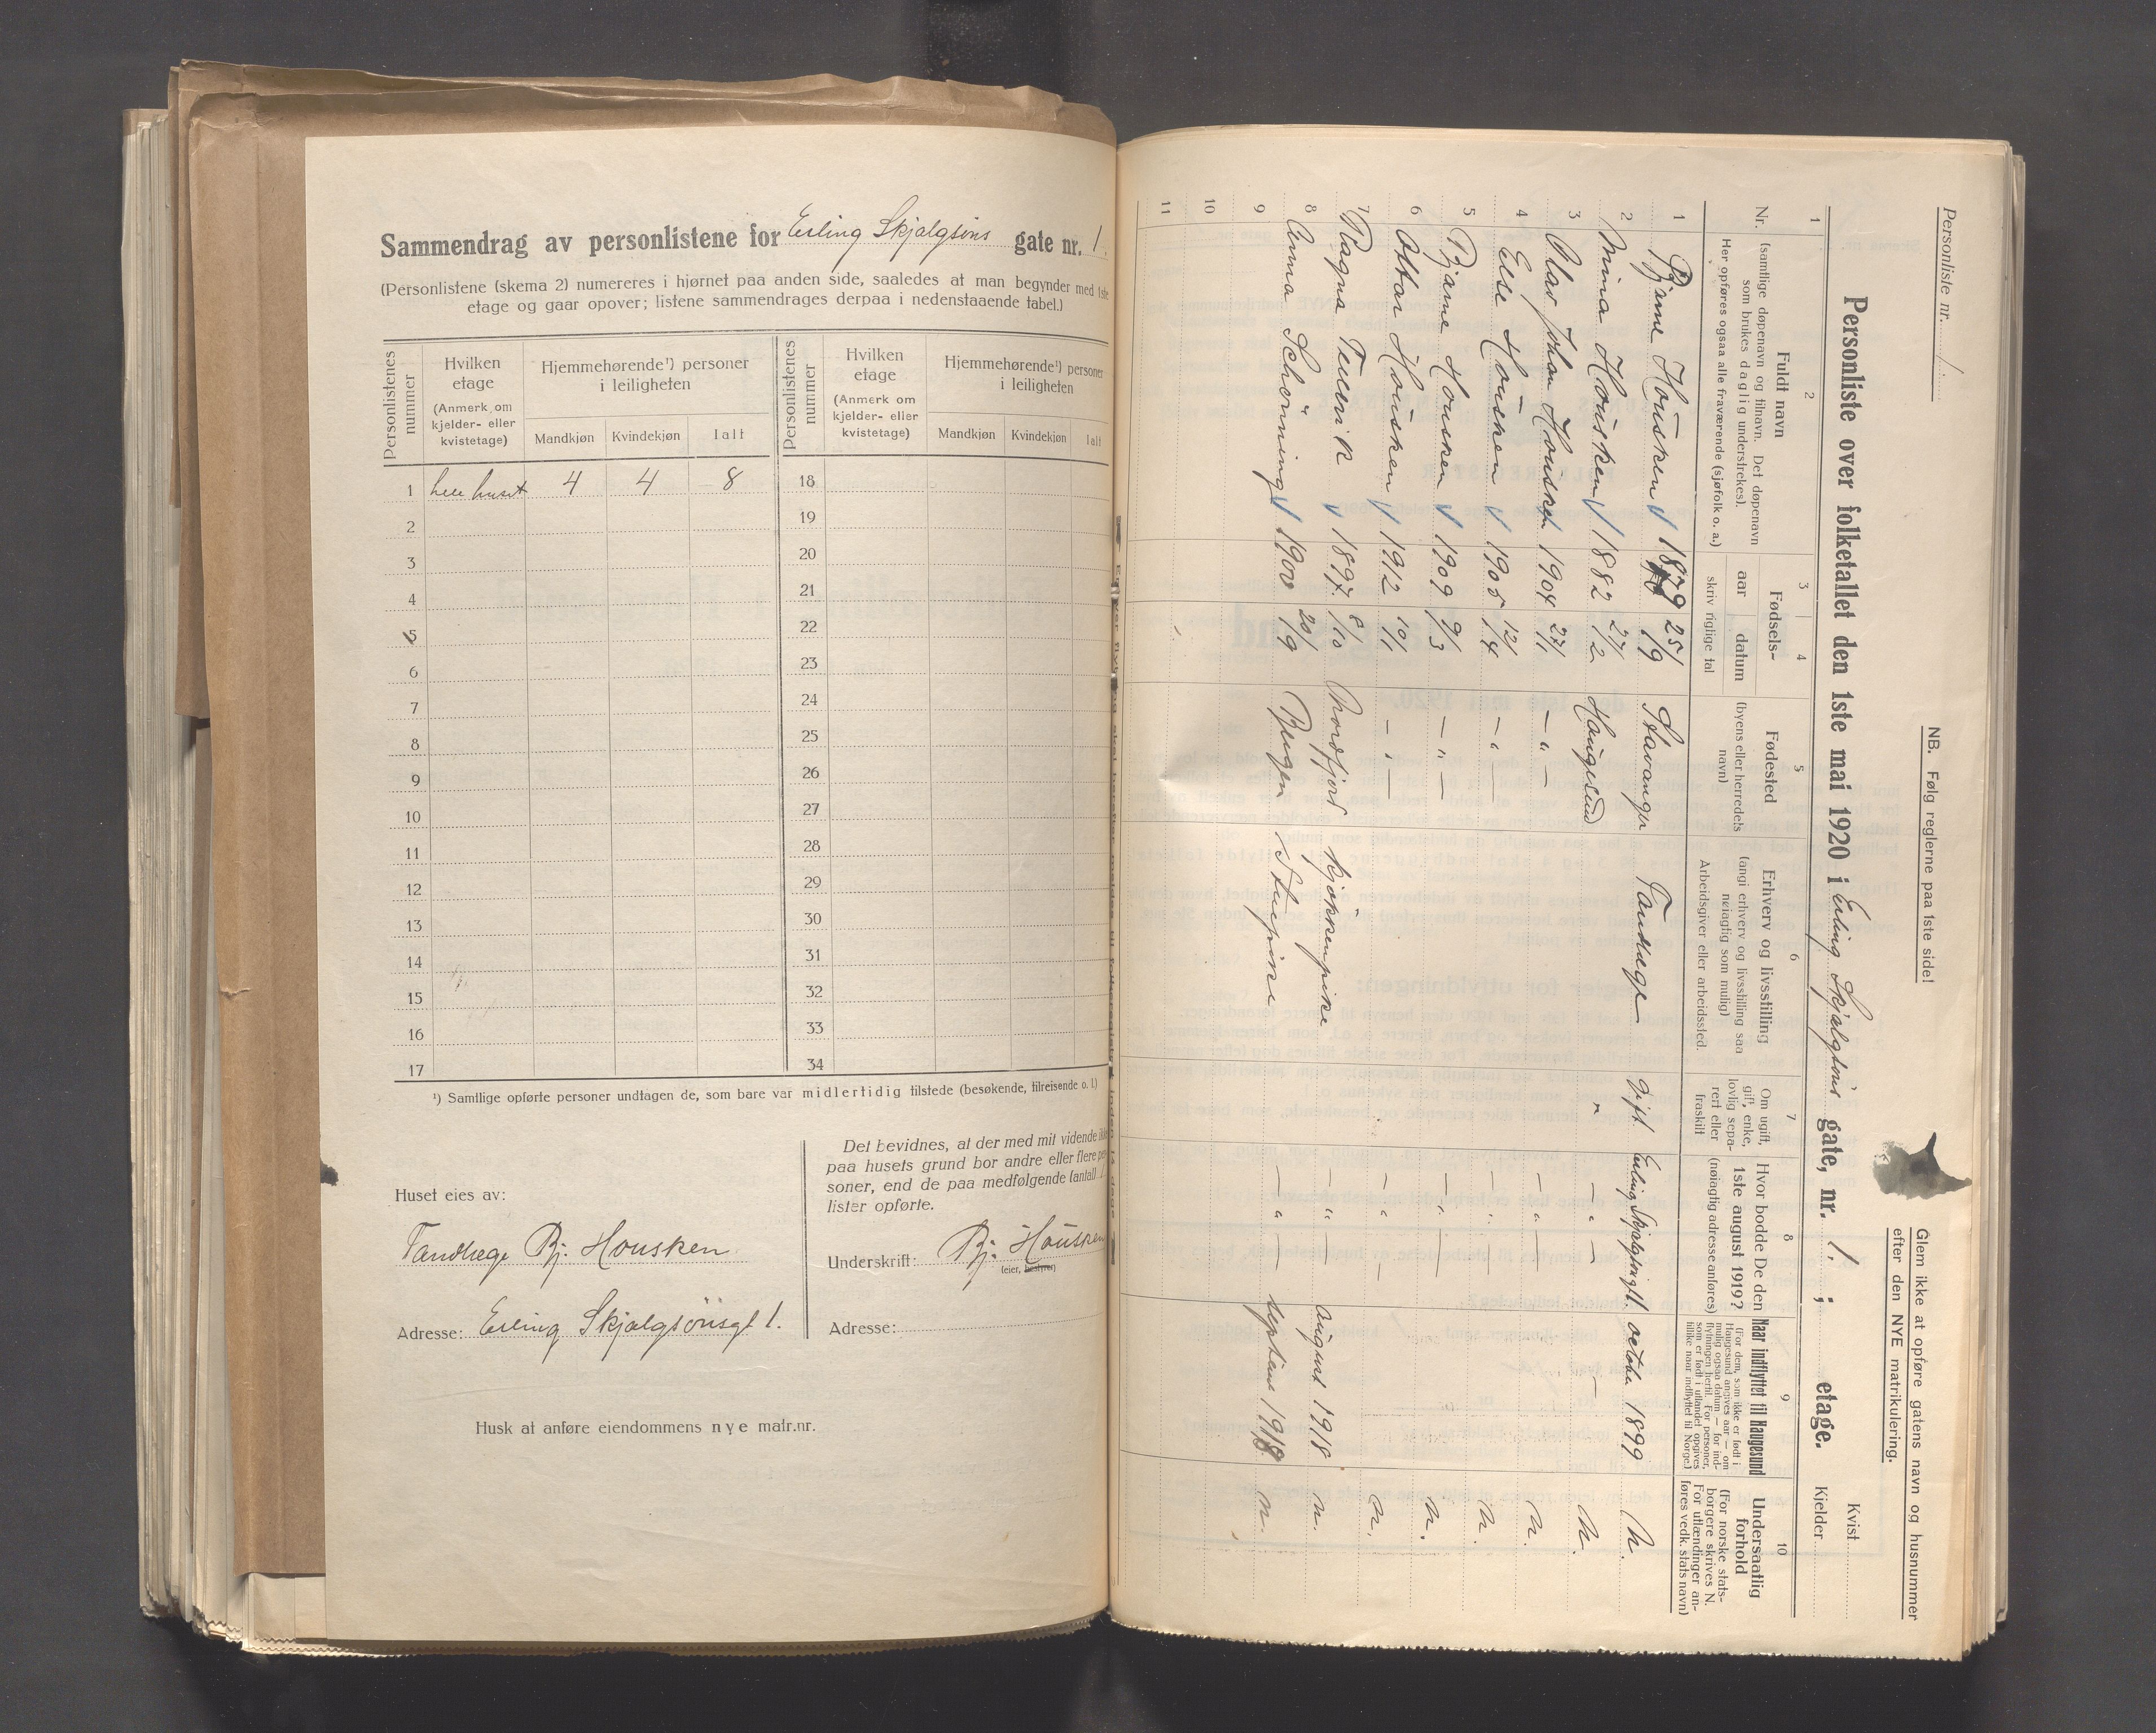 Sammendrag av personlistene for Erling Skjalgsøns gate nr. 1.
(Personlistene (skema 2) numereres i hjørnet paa anden side, saaledes at man begynder med 1ste
etage og gaar opover; listene sammendrages derpaa i nedenstaaende tabel.)
Personlistenes nummer
Hvilken etage
(Anmerk om kjelder- eller kvistetage)
Hjemmehørende¹) personer i leiligheten
Mandkjøn Kvindekjøn Ialt
Personlistenes nummer
Hvilken etage
(Anmerk om kjelder- eller kvistetage)
Hjemmehørende¹) personer i leiligheten
Mandkjøn Kvindekjøn Ialt
1 hele huset 4 4 8 18
2 19
3 20
4 21
5 22
6 23
7 24
8 25
9 26
10 27
11 28
12 29
13 30
14 31
15 32
16 33
17 34
¹) Samtlige opførte personer undtagen de, som bare var midlertidig tilstede (besøkende, tilreisende o. l.)
Huset eies av:
Tandlæge Bj. Housken
Adresse: Erling Skjalgsønsgt 1.
Det bevidnes, at der med mit vidende ikke
paa husets grund bor andre eller flere per
soner, end de paa medfølgende (antall) 1
lister opførte.
Underskrift: Bj. Housken
(eier, bestyrer)
Adresse:
Husk at anføre eiendommens nye matr.nr.
Personliste nr. 1.
NB. Følg reglerne paa 1ste side!
Glem ikke at opføre gatens navn og husnummer
efter den NYE matrikulering.
Personliste over folketallet den 1ste mai 1920 i Erling Skjalgsøns gate, nr. 1. ; etage.
Kvist
Kjelder
1 2 3 4 5 6 7 8 9 10
Nr.
Fuldt navn
(samtlige døpenavn og tilnavn. Det døpenavn
som brukes daglig understrekes).
Her opføres ogsaa alle fraværende (sjøfolk o. a.)
Fødsels-
aar datum
skriv riglige tal
Fødested
(byens eller herredets
navn)
Erhverv og livsstilling
(angi erhverv og livsstilling saa
nøiagtig som mulig)
Arbeidsgiver eller arbeidssted.
Om ugift,
gift, enke,
lovlig sepa-
rert eller
fraskilt
Hvor bodde De den
1ste august 1919?
(nøiagtig adresse anføres)
Naar indflyttet til Haugesund
(For dem, som ikke er født i
Haugesund angives aar — om
mulig ogsaa datum — for ind-
flytningen hertil. For personer,
som er født i utlandet opgives
tillike naar indflyttet til Norge.)
Undersaatlig
forhold
(For norske stats-
borgere skrives N.
For utlændinger an-
føres vedk. stats navn)
1 Bjarne Housken 1879 25/9 Stavanger Tandlæge Gift Erling Skjalgsønsgt 1. october 1899 N.
2 Mina Housken 1882 27/2 Haugesund " — " — — N.
3 Olav Johan Housken 1904 27/1 — " — — " — N.
4 Else Housken 1905 12/4 — " — — " — N.
5 Bjarne Housken 1909 9/3 — " — — " — N.
6 Ottar Housken 1912 10/1 — " — — " — N.
7 Ragna 1897 8/10 Nordfjord Kjøkkenpike — " — August 1918 N.
8 Anna Schöning 1900 20/9 Bergen Stuepike — " — september 1918 N.
9
10
11